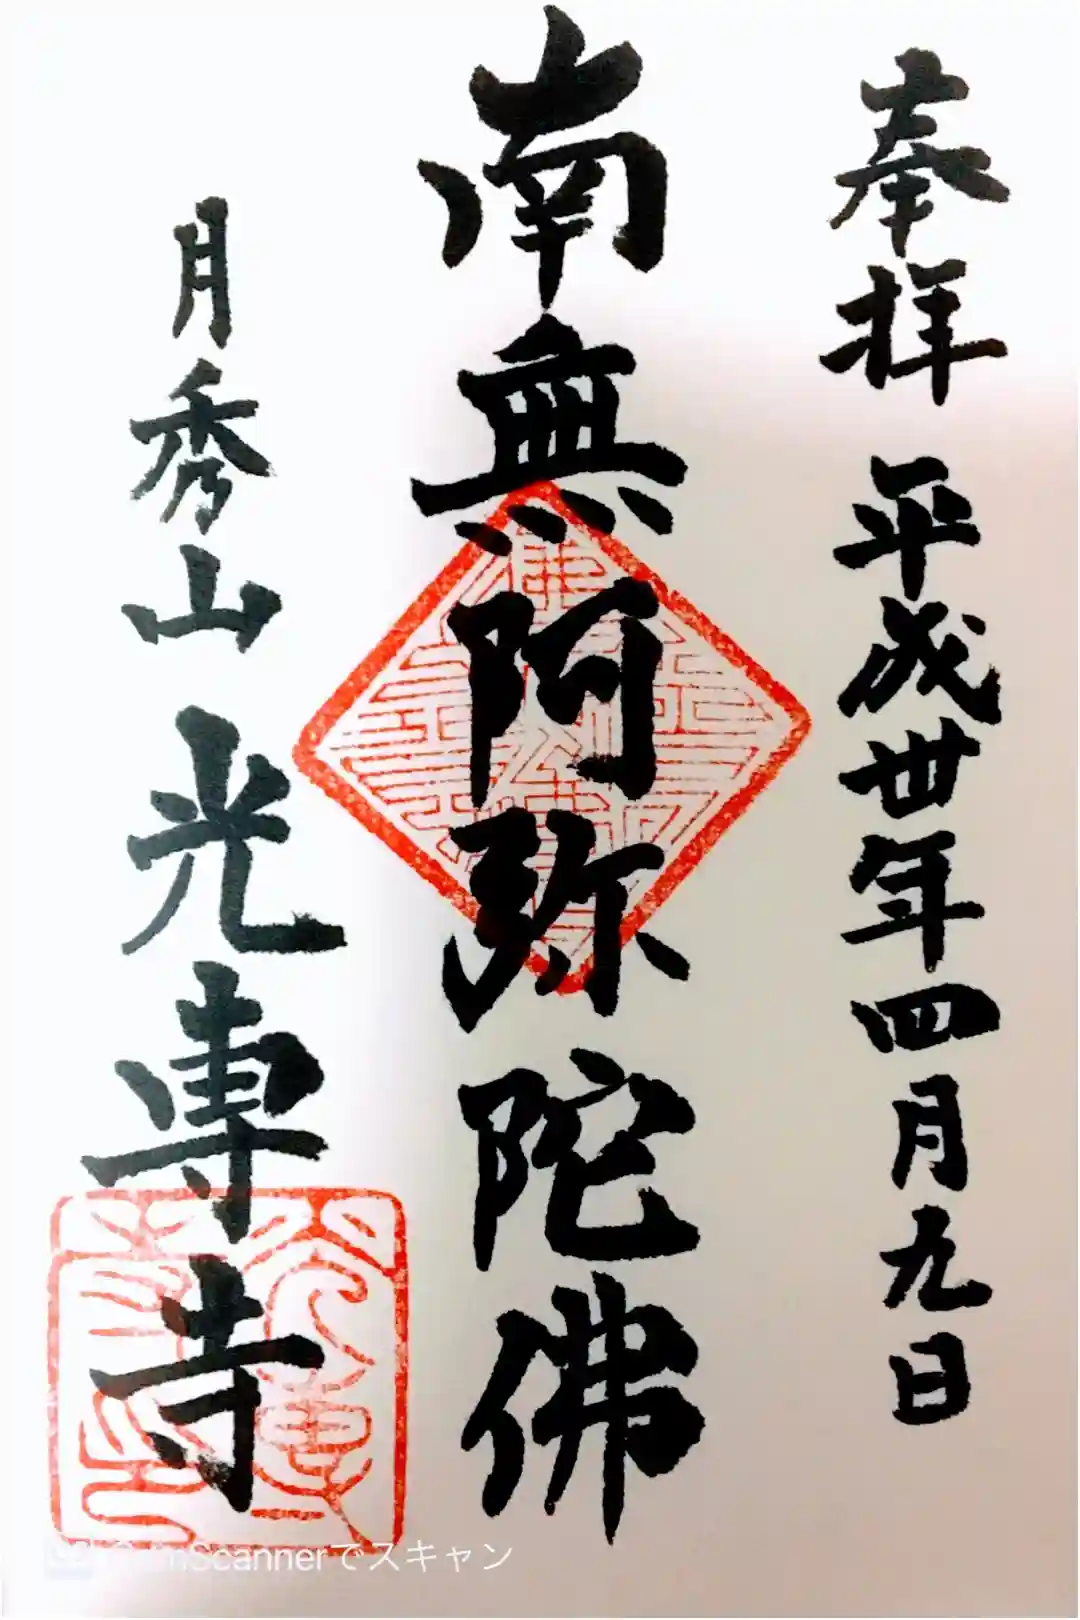 奉拝 平成卅年四月九日
南無阿弥陀佛
月秀山 光専寺
CamScannerでスキャン